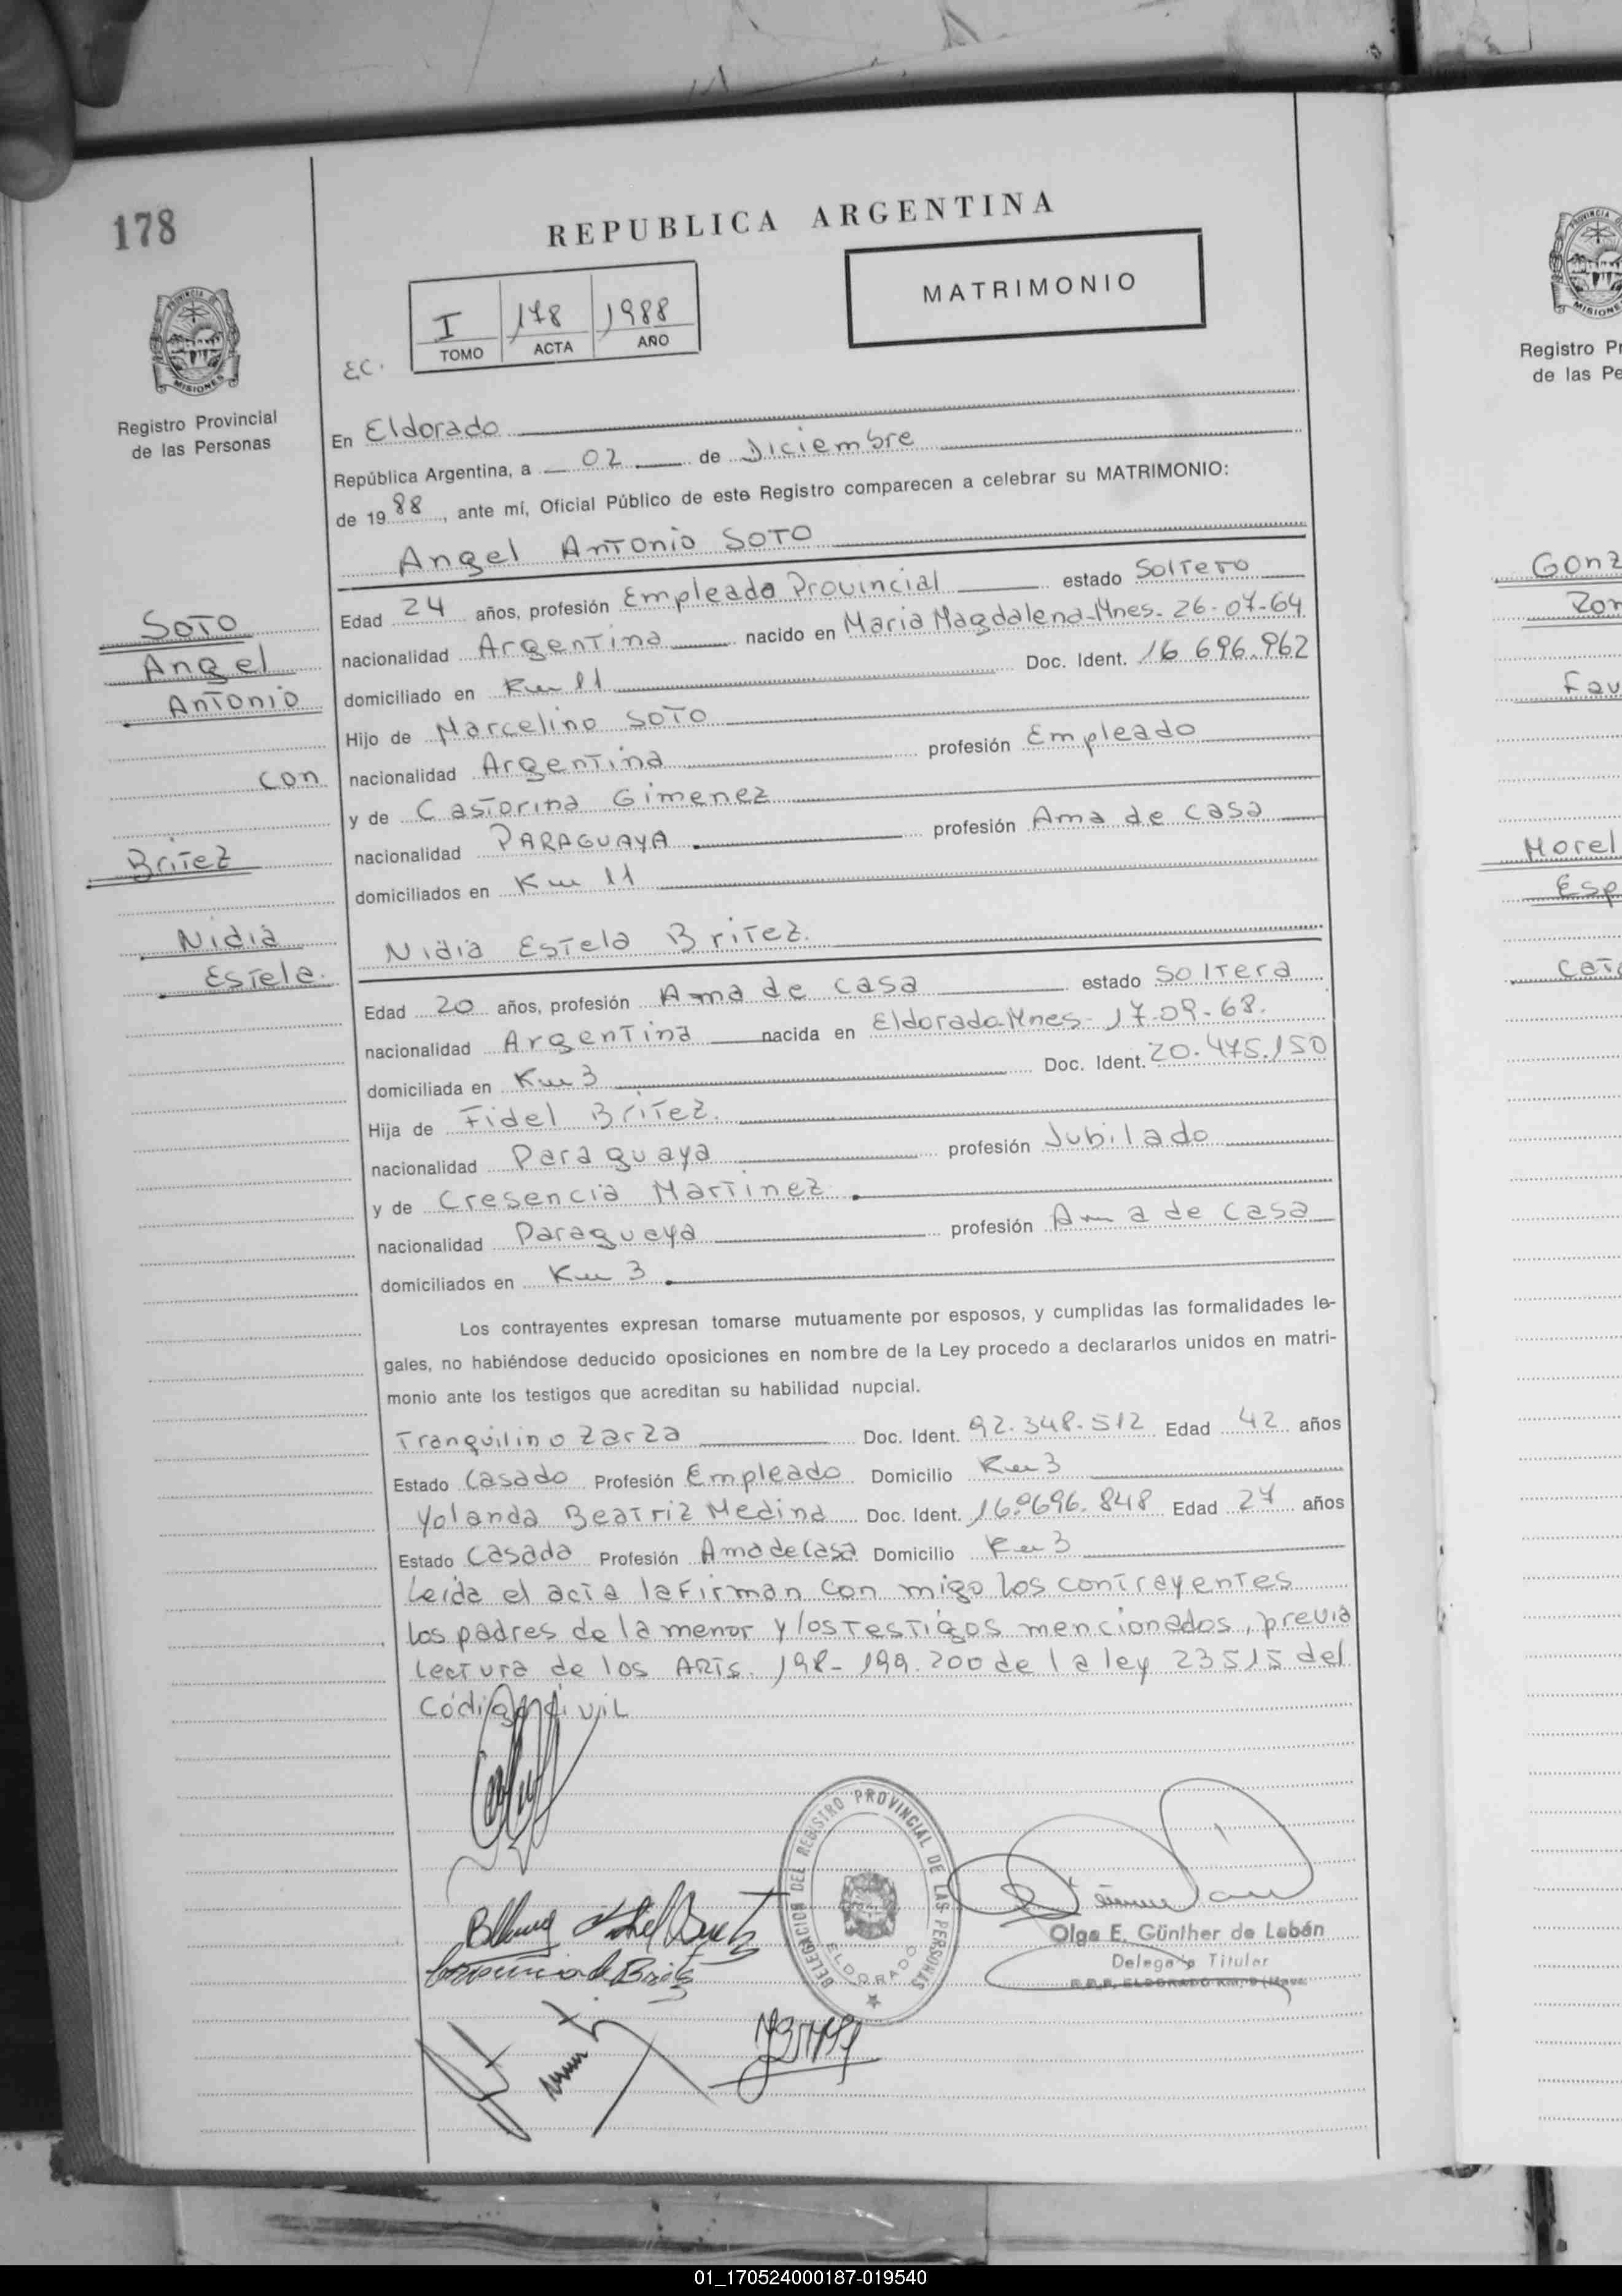 178
REPUBLICA ARGENTINA
MATRIMONIO
I 178 1988
TOMO ACTA AÑO
E.C.
PROVINCIA DE
MISIONES
Registro Provincial
de las Personas
En Eldorado
República Argentina, a 02 de Diciembre
de 1988, ante mí, Oficial Público de este Registro comparecen a celebrar su MATRIMONIO:
Angel Antonio SOTO
Edad 24 años, profesión Empleado Provincial estado Soltero
nacionalidad Argentina nacido en Maria Magdalena-Mnes- 26-07-64
domiciliado en Km 11 Doc. Ident. 16.696.962
Hijo de Marcelino SOTO
nacionalidad Argentina profesión Empleado
y de Castorina Gimenez
nacionalidad PARAGUAYA profesión Ama de casa
domiciliados en Km 11
SOTO
Angel
Antonio
con
Britez
Nidia
Estela.
Nidia Estela Britez.
Edad 20 años, profesión Ama de casa estado Soltera
nacionalidad Argentina nacida en Eldorado-Mnes- 17-09-68.
domiciliada en Km 3 Doc. Ident. 20.475.150
Hija de Fidel Britez.
nacionalidad Paraguaya profesión Jubilado
y de Cresencia Martinez
nacionalidad Paraguaya profesión Ama de casa
domiciliados en Km 3
Los contrayentes expresan tomarse mutuamente por esposos, y cumplidas las formalidades le-
gales, no habiéndose deducido oposiciones en nombre de la Ley procedo a declararlos unidos en matri-
monio ante los testigos que acreditan su habilidad nupcial.
Tranquilino Zarza Doc. Ident. 92.348.512 Edad 42 años
Estado Casado Profesión Empleado Domicilio Km 3
Yolanda Beatriz Medina Doc. Ident. 16.696.848 Edad 24 años
Estado Casada Profesión Ama de Casa Domicilio Km 3
Leída el acta la Firman con migo los contrayentes
los padres de la menor y los testigos mencionados, previa
lectura de los ARTS. 198-199.200 de la ley 23515 del
Código Civil
DELEGACION DEL REGISTRO PROVINCIAL DE LAS PERSONAS
ELDORADO
Olga E. Günther de Labán
Delegada Titular
Registro Pr
de las Pe
MISIONE
Gonz
Fav
Morel
Esp
01_170524000187-019540